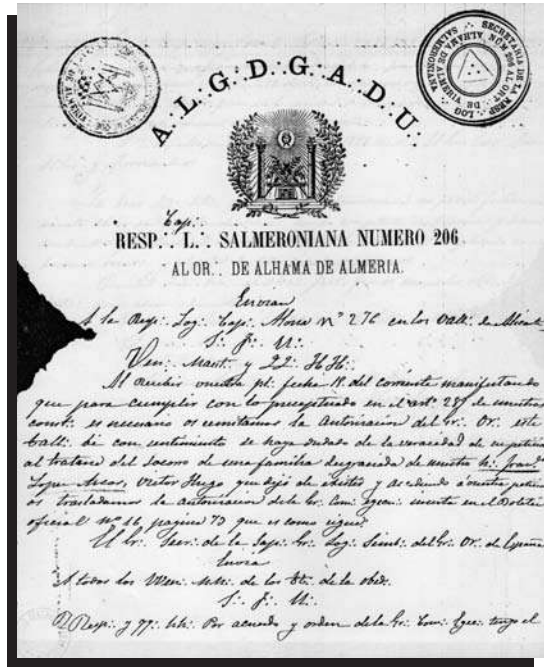 A∴L∴G∴D∴G∴A∴D∴U∴
SECRETARIA DE LA RESP∴ LOG∴ SALMERONIANA NUM 206 AL ORT∴ DE ALHAMA DE ALMERIA
Cap∴
RESP∴ L∴ SALMERONIANA NUMERO 206
AL OR∴ DE ALHAMA DE ALMERIA.
Envian
A la Resp∴ Log∴ Cap∴ Alona nº 276 en los Vall∴ de Alicante
S∴ F∴ U∴
Ven∴ Maest∴ y QQ∴ HH∴
Al recibir vuestra pl∴ fecha 18 del corriente manifestando
que para cumplir con lo preceptuado en el artº 28 de nuestra
const∴ es necesario os remitamos la Autorizacion del Gr∴ Or∴ este
tall∴ con sentimiento se haga dudado de la veracidad de su peticion
al tratarse del socorro de una familia desgraciada de nuestro h∴ Francº
Lopez Victor Hugo que dejó de existir y accediendo á vuestra peticion
os trasladamos la autorizacion de la Gr∴ Com∴ inserta en el Boletin
oficial nº 16 pagina 73 que es como sigue:
El Gr∴ Secr∴ de la Sup∴ Gr∴ Log∴ Simb∴ del Gr∴ Or∴ de España
Envia
A todos los Ven∴ MM∴ de los tt∴ de la obed∴
S∴ F∴ U∴
Resp∴ y QQ∴ hh∴ Por acuerdo y orden de la Gr∴ Com∴ Ejec∴ tengo el